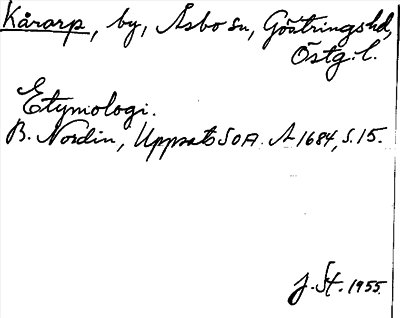 Kårarp, by, Åsbo sn, Göstringshd,
Östg. l.
Etymologi.
B. Nordin, Uppsats SOA. A 1684, s. 15.
J. St. 1955.